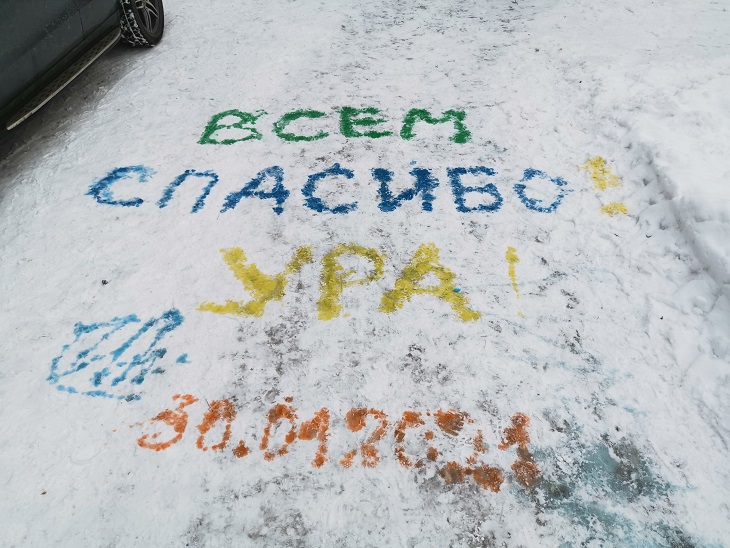 ВСЕМ
СПАСИБО!
УРА!
30.01.2021